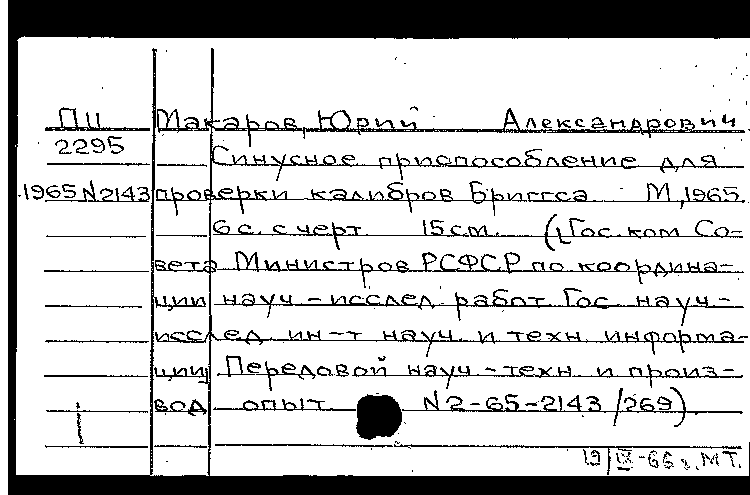 ПЦ Макаров, Юрий Александрович
2295 Синусное приспособление для
1965 N2143 проверки калибров Бриггса М, 1965.
6 с. с черт. 15 см. (Гос. ком Со-
вета Министров РСФСР по координа-
ции науч-исслед работ Гос науч-
исслед ин-т науч. и техн информа-
ции Передовой науч-техн и произ-
вод опыт N2-65-2143/269).
19/IX-66 г. МТ.